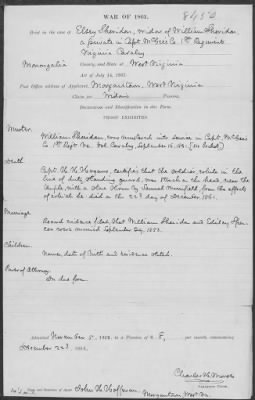 WAR OF 1861.
Brief in the case of Elsey Sheridan, widow of William Sheridan,
a private in Capt McGees Co 1st Regiment
Virginia Cavalry
Monongalia County, and State of West Virginia
Act of July 14, 1862.
Post Office address of Applicant, Morgantown, West Virginia
Claim for Widow's Pension.
Declaration and Identification in due Form.
PROOF EXHIBITED
Muster.
William Sheridan, was mustered into service in Capt. McGees
Co 1st Regt. Va. Vol. Cavalry, September 16, 1861
Death
Capt. H. H. Hagans, certifies that the soldier, while in the
line of duty, standing guard, was struck on the head, near the
temple, with a stone thrown by Samuel Merrifield, from the effects
of which he died on the 22d day of December 1861.
Marriage
Record evidence filed, that William Sheridan and
were married September 1853.
Children
Name, date of birth and evidence stated.
Power of Attorney.
In due form.
Admitted November 5th, 1863, to a Pension of $ 8, per month, commencing
December 22d 1861.
Charles H. 
Examining Clerk.
Name and Residence of Agent John H. Hoffman,
Morgantown West Va.